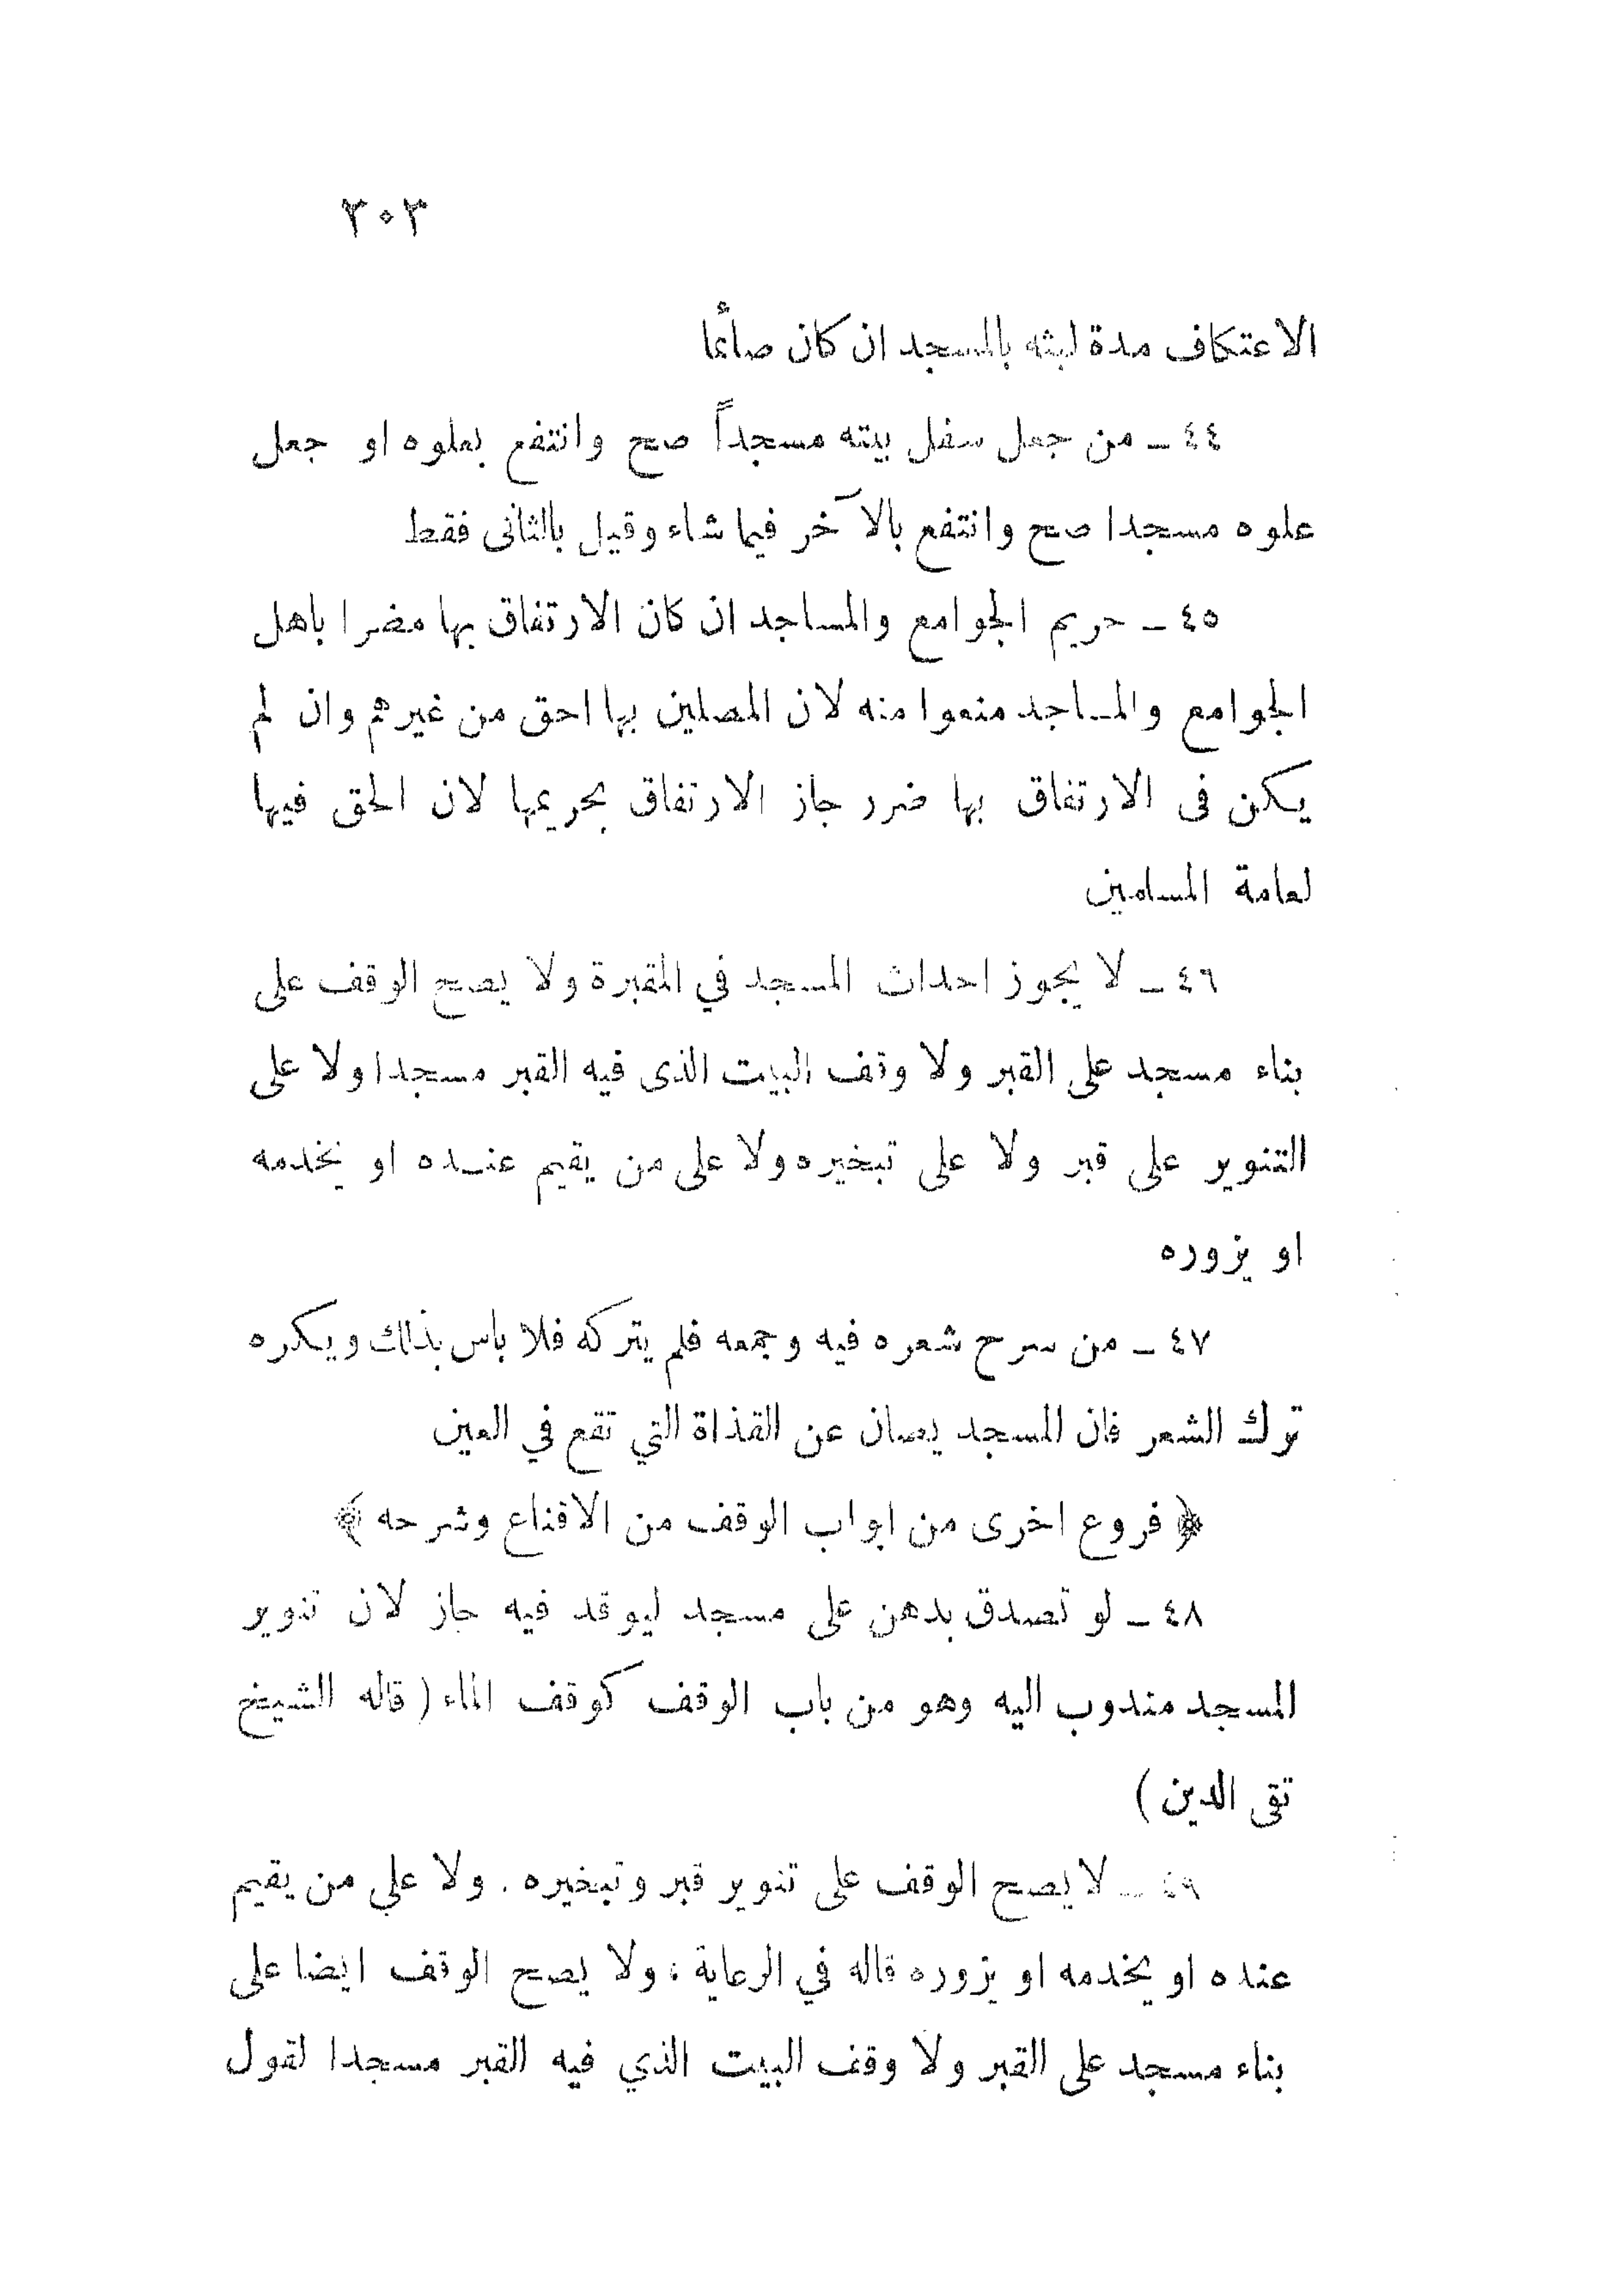 ٣٠٣
الاعتكاف مدة لبثه بالمسجد ان كان صائما
٤٤ ـ من جعل سفل بيته مسجداً صح وانتفع بعلوه او جعل
علوه مسجدا صح وانتفع بالآخر فيما شاء وقيل بالثانى فقط
٤٥ ـ حريم الجوامع والمساجد ان كان الارتفاق بها مضرا باهل
الجوامع والمساجد منعوا منه لان المصلين بها احق من غيرهم وان لم
يكن فى الارتفاق بها ضرر جاز الارتفاق بحريمها لان الحق فيها
لعامة المسلمين
٤٦ ـ لا يجوز احداث المسجد في المقبرة ولا يصح الوقف على
بناء مسجد على القبر ولا وقف البيت الذى فيه القبر مسجدا ولا على
التنوير على قبر ولا على تبخيره ولا على من يقيم عنده او يخدمه
او يزوره
٤٧ ـ من سرح شعره فيه وجمعه فلم يتركه فلا باس بذلك ويكره
ترك الشعر فان المسجد يصان عن القذاة التي تقع في العين
﴿ فروع اخرى من ابواب الوقف من الاقناع وشرحه ﴾
٤٨ ـ لو تصدق بدهن على مسجد ليوقد فيه جاز لان تنوير
المسجد مندوب اليه وهو من باب الوقف كوقف الماء ( قاله الشيخ
تقى الدين )
٤٩ ـ لا يصح الوقف على تنوير قبر وتبخيره . ولا علي من يقيم
عنده او يخدمه او يزوره قاله في الرعاية ، ولا يصح الوقف ايضا على
بناء مسجد على القبر ولا وقف البيت الذي فيه القبر مسجدا لقول